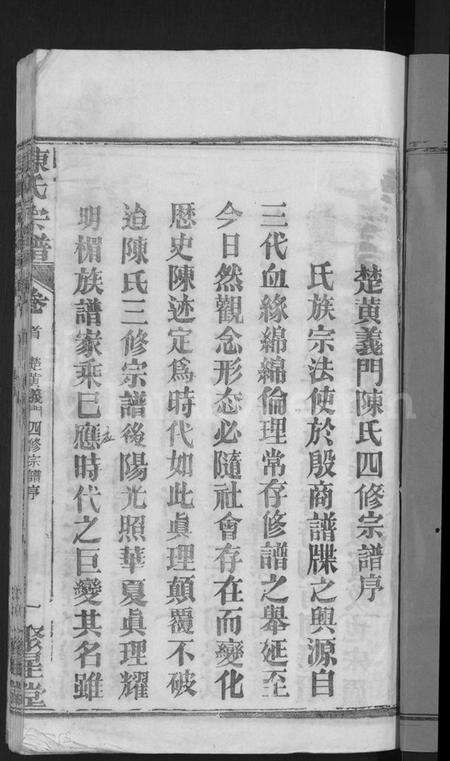 楚黄義門陳氏四修宗譜序
氏族宗法使於殷商譜牒之興源自
三代血緣綿綿倫理常存修譜之舉延至
今日然觀念形态必隨社會存在而變化
歷史陳迹定為時代如此真理顛覆不破
迨陳氏三修宗譜後陽光照華夏真理耀
明楣族譜家乘巳應時代之巨變其名雖
陳氏宗譜
卷首
楚黄義門四修宗譜序
一
聚星堂